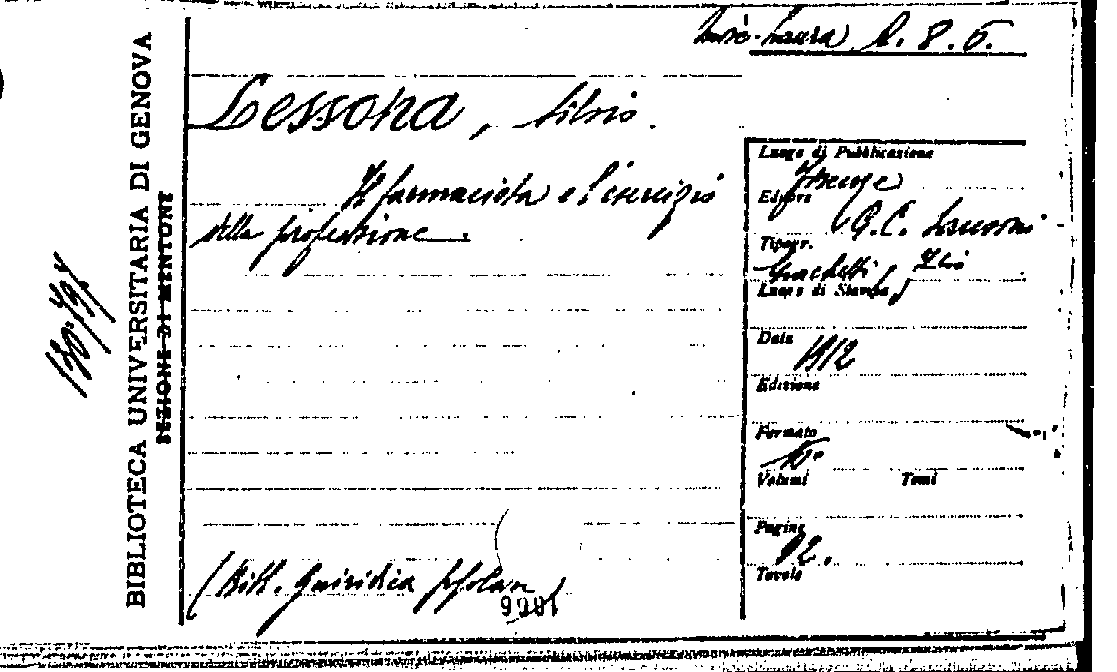 B. 8. 6.
Lessona, Silvio.
Il farmacista e l'esercizio
della professione.
(Bibl. Giuridica popolare)
BIBLIOTECA UNIVERSITARIA DI GENOVA
SEZIONE DI MENTONE
Luogo di Pubblicazione
Firenze
Editore
G. C. Sansoni
Tipogr.
Luogo di Stampa
Data
1912
Edizione
Formato
16°
Volumi Tomi
Pagine
92.
Tavole